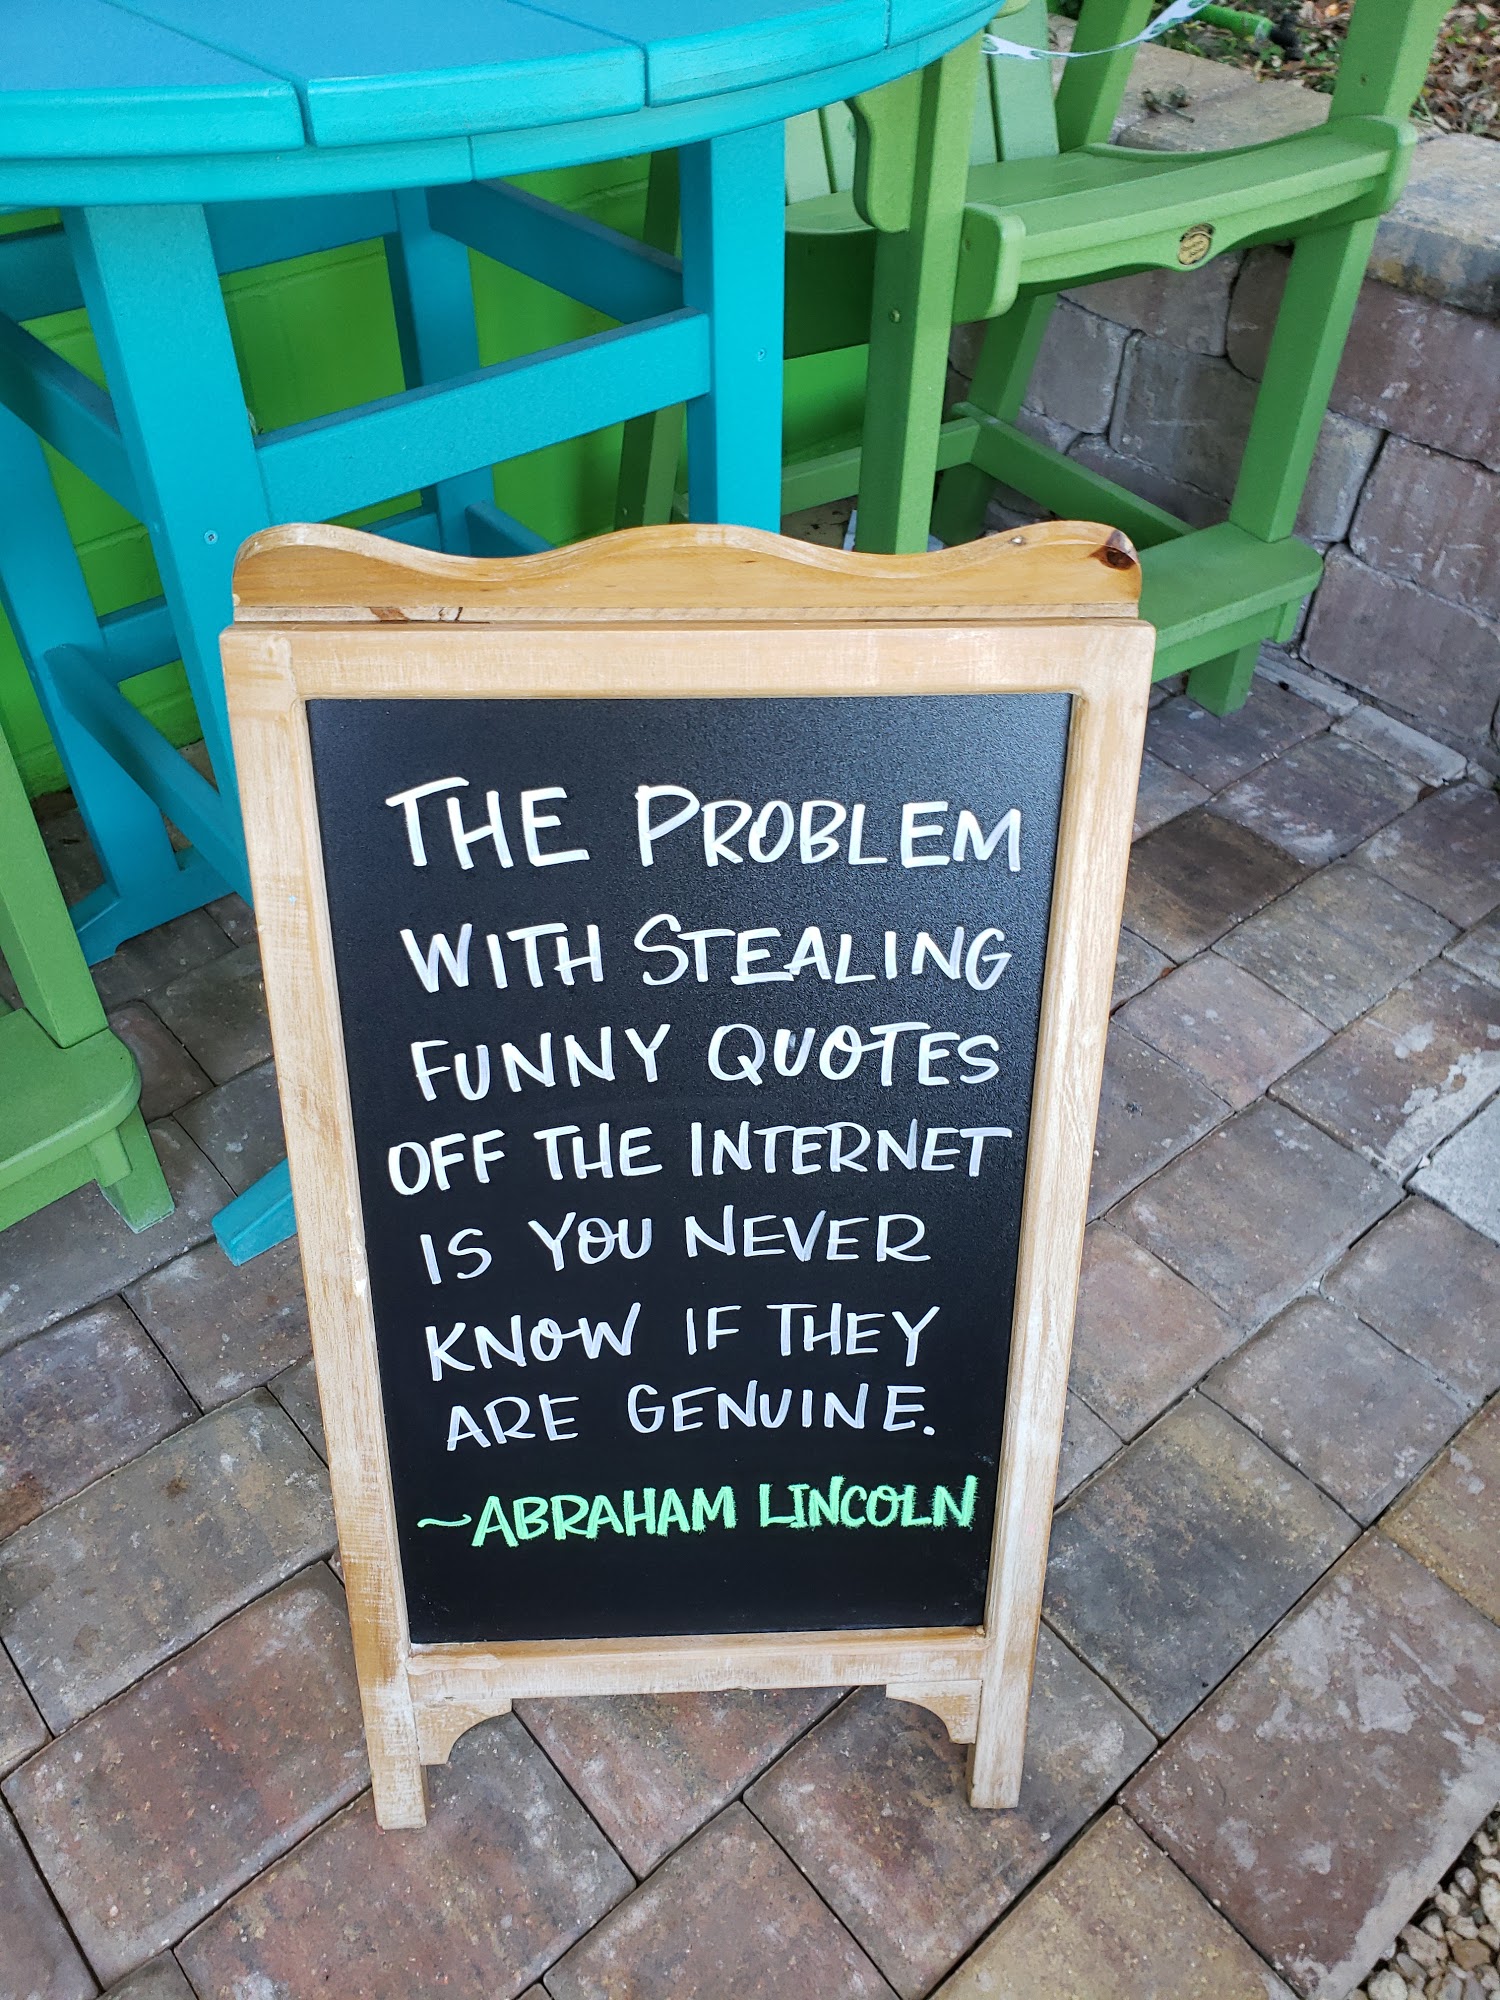 THE PROBLEM
WITH STEALING
FUNNY QUOTES
OFF THE INTERNET
IS YOU NEVER
KNOW IF THEY
ARE GENUINE.
~ABRAHAM LINCOLN